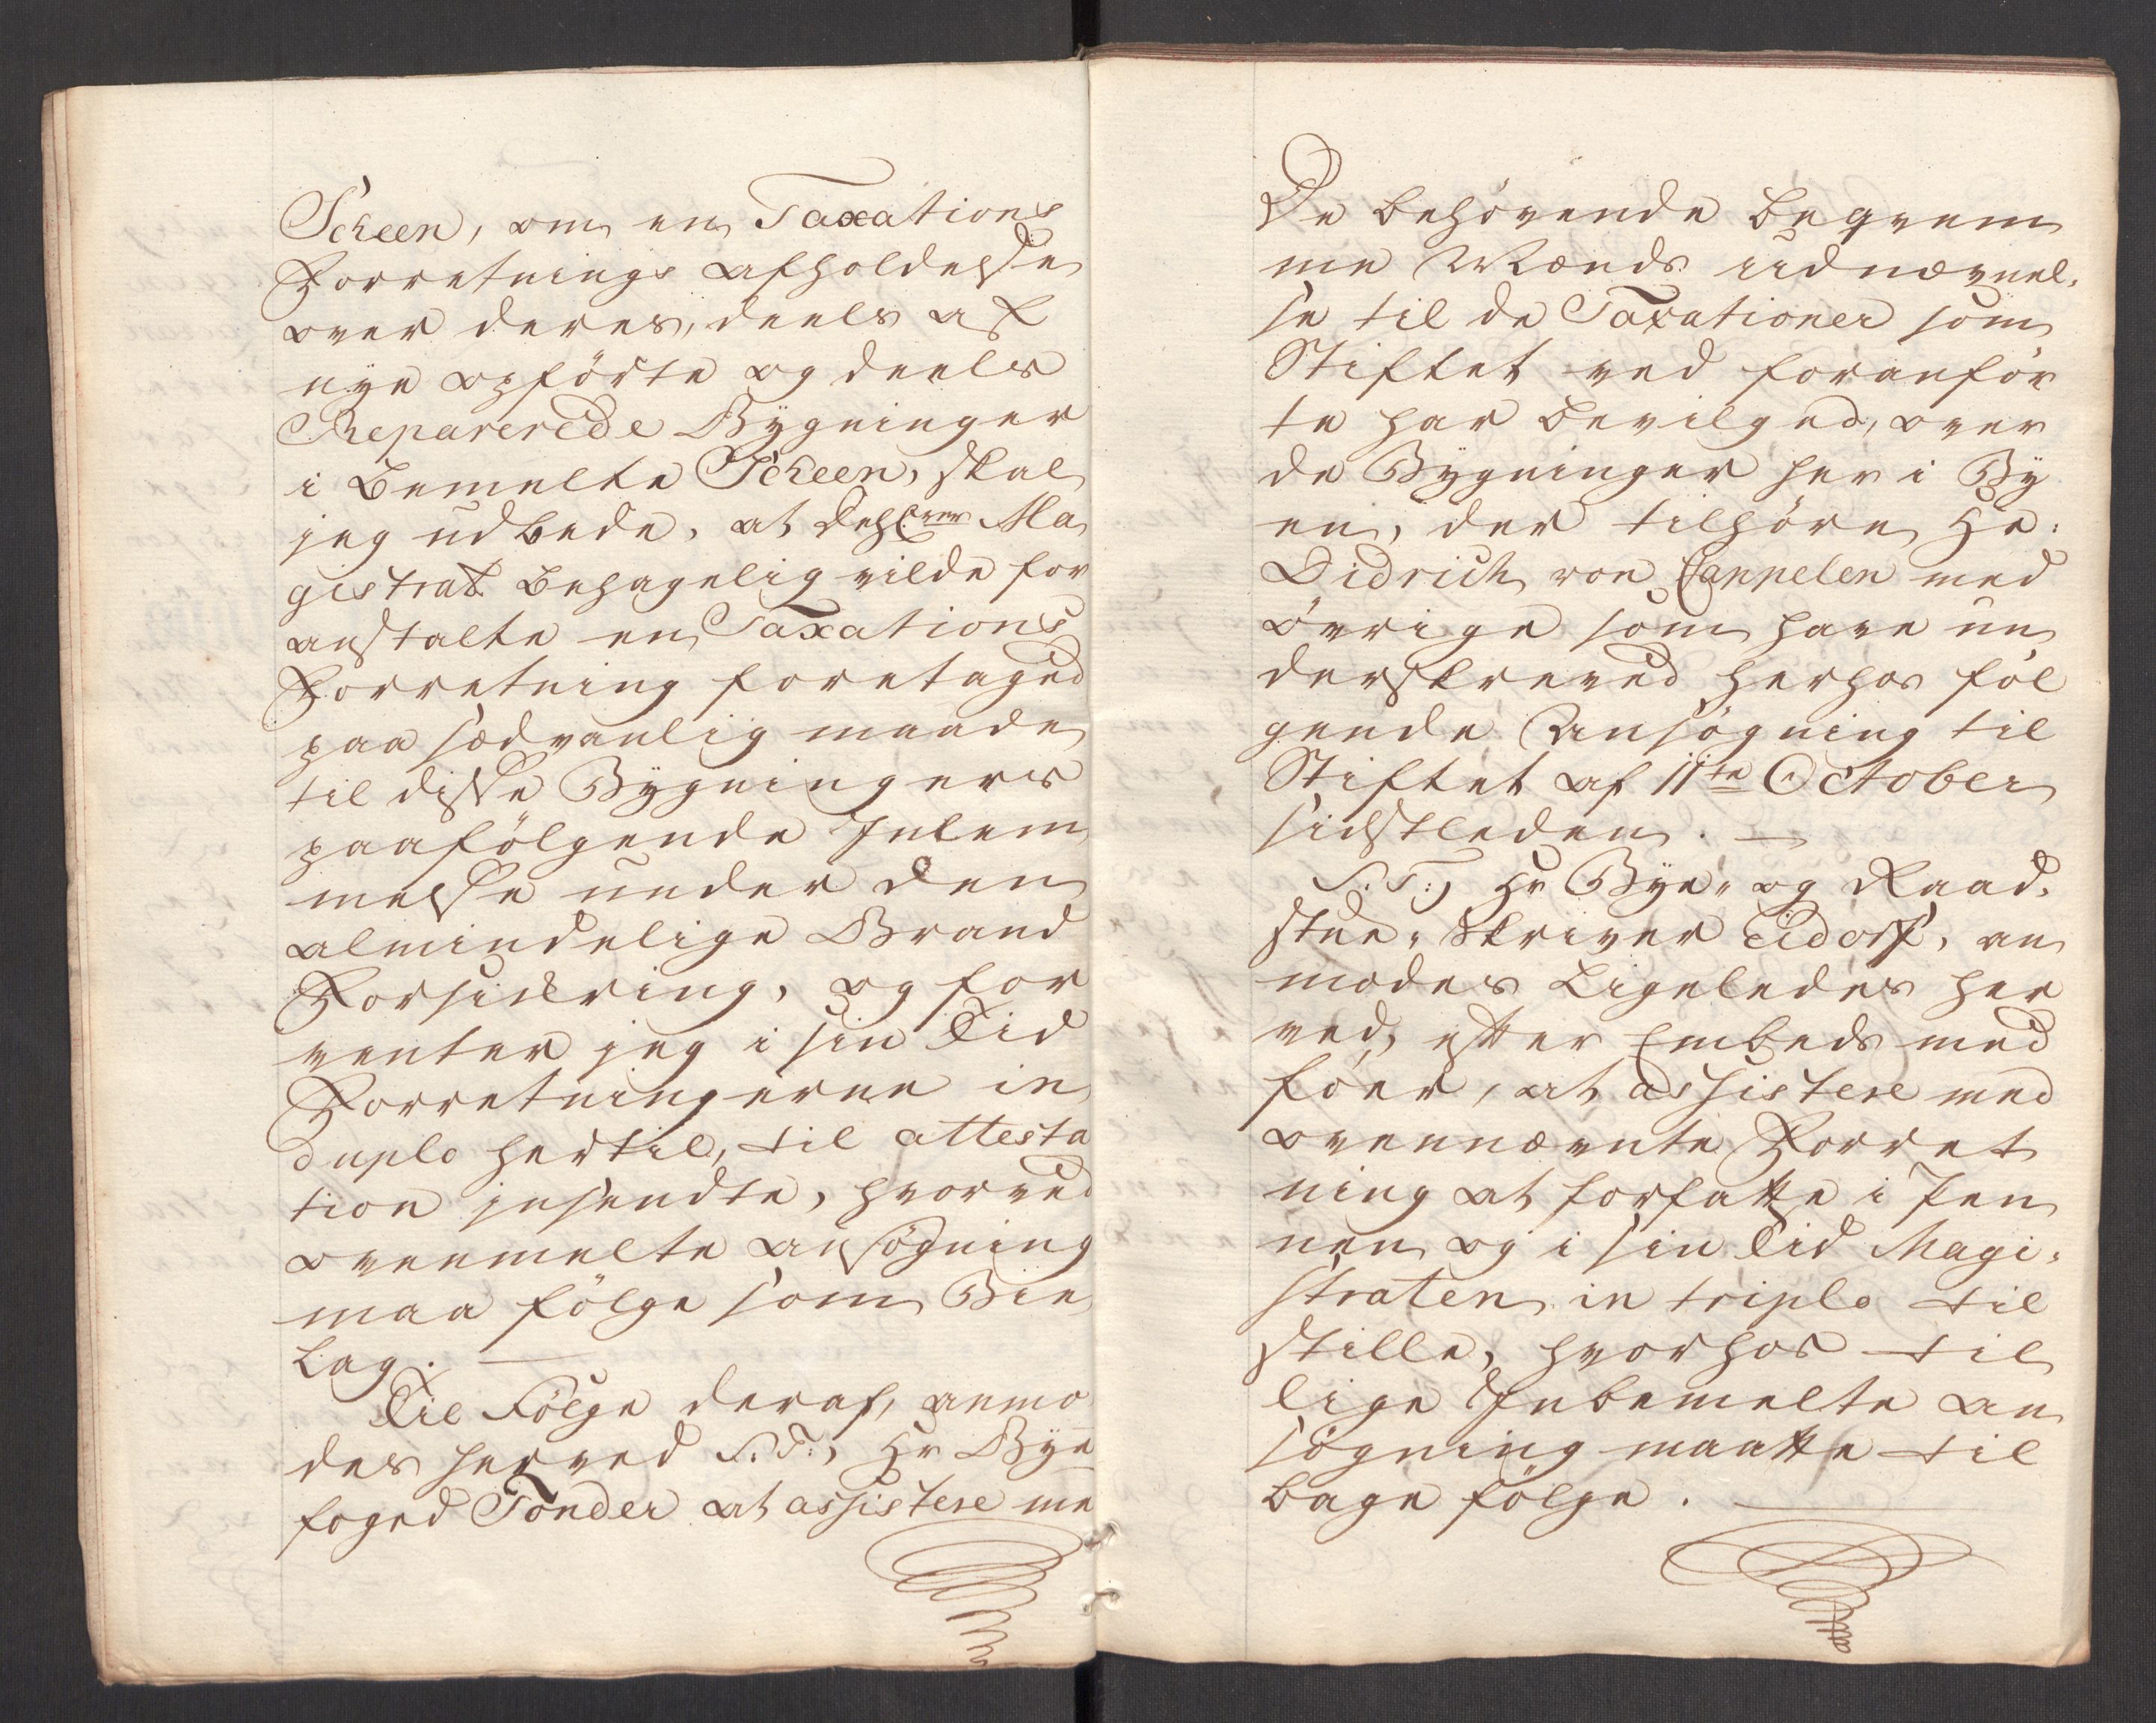 Scheen, om en Taxations
Forretnings afholdelse
over deres, deels af
nye opförte og deels
Reparerede Bÿgninger
i bemelte Scheen, skal
jeg udbede, at Ma
gistrat behagelig vilde for
anstalte en Taxations
Forretning foretaged
paa sædvanlig maade
til disse Bÿgningers
paafölgende Inlem
melse under den
almindelige Brand
Forsikring, og for
venter jeg i sin Tid
Forretningerne in
duplo hertil, til attesta
tion insendte, hvorved
ovenmelte ansögning
maa fölge som Bie
lag. —
Til Fölge deraf, anmo
des herved S. T:, Hr Bÿe
foged Tönder at assistere me
De behövende beqvem
me Mænds udnævnel,
se til de Taxationer som
Stiftet ved foranför
te har bevilged, over
de Bÿgninger her i Bÿ
en, der tilhöre Hr:
Didrich von Cappelen med
övrige som have un
derskreved herhos föl
gende Ansögning til
Stiftet af 11te October
sidstleden. —
S. T:, Hr Bÿe, og Raad,
stue, Skriver Eidorff, an
modes Ligeledes her
ved, efter Embeds med
föer, at assistere med
ovennævnte Forret
ning at forfatte i Pen
nen og i sin Tid Magi,
straten in triplo til
stille, hvorhos til
lige Inbemelte an
sögning maatte til
bage fölge. —